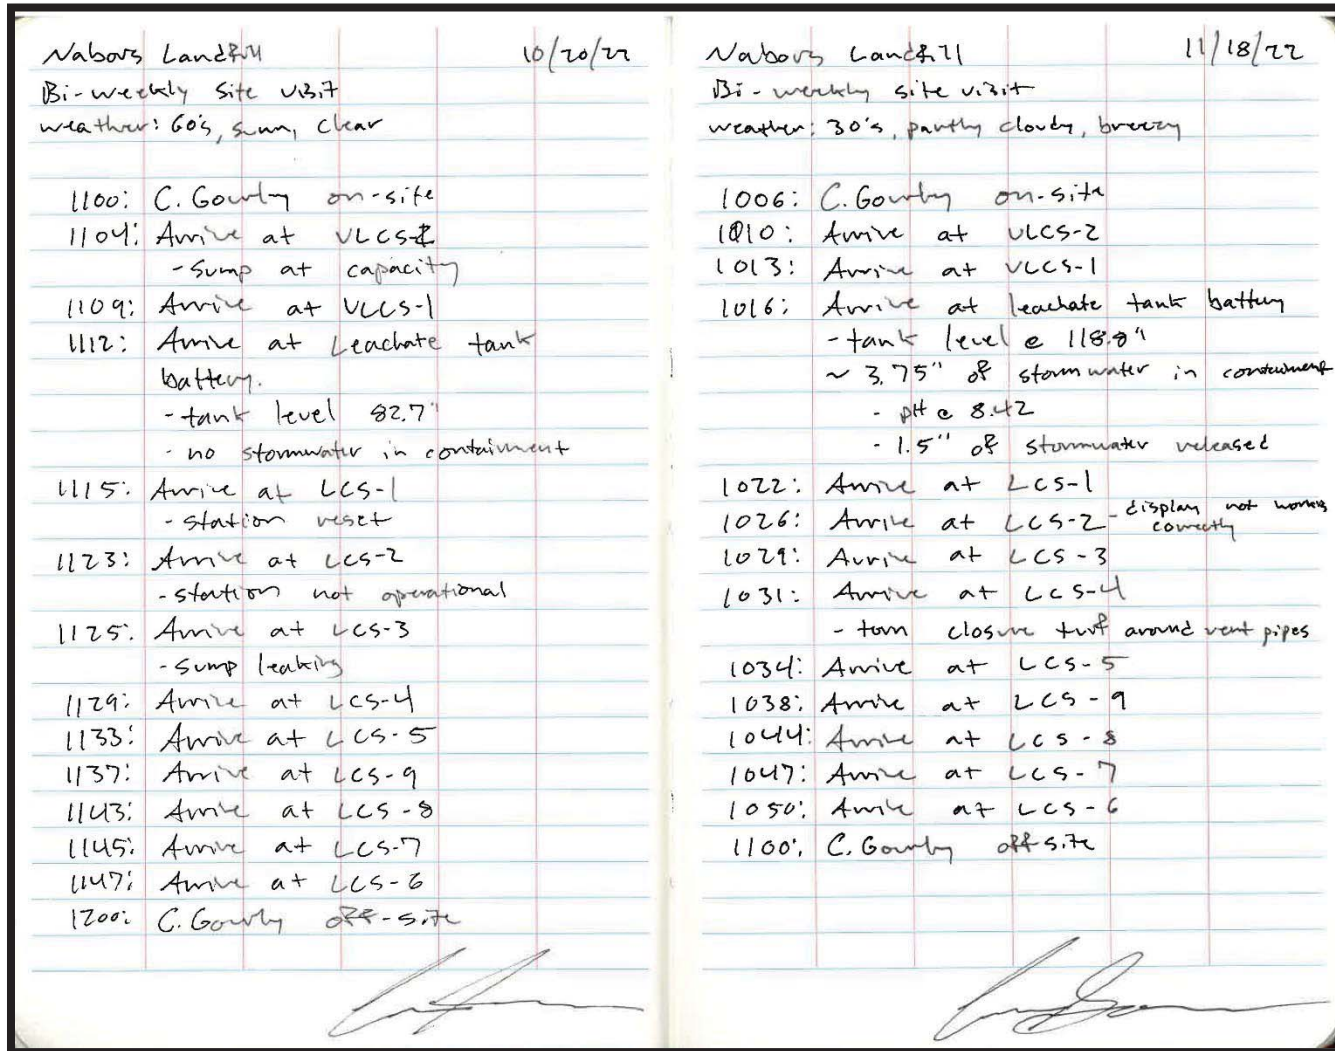 Nabors Landfill 10/20/22
Bi-weekly site visit
weather: 60's, sunny, clear
1100: C. Gourley on-site
1104: Arrive at VLCS-2
- sump at capacity
1109: Arrive at VLCS-1
1112: Arrive at Leachate tank
battery.
- tank level 82.7"
- no stormwater in containment
1115: Arrive at LCS-1
- station reset
1123: Arrive at LCS-2
- station not operational
1125: Arrive at LCS-3
- sump leaking
1129: Arrive at LCS-4
1133: Arrive at LCS-5
1137: Arrive at LCS-9
1143: Arrive at LCS-8
1145: Arrive at LCS-7
1147: Arrive at LCS-6
1200: C. Gourley off-site
Nabors Landfill 11/18/22
Bi-weekly site visit
weather: 30's, partly cloudy, breezy
1006: C. Gourley on-site
1010: Arrive at VLCS-2
1013: Arrive at VLCS-1
1016: Arrive at leachate tank battery
- tank level @ 118.8"
~ 3.75" of stormwater in containment
- pH @ 8.42
- 1.5" of stormwater released
1022: Arrive at LCS-1
1026: Arrive at LCS-2 - display not working correctly
1029: Arrive at LCS-3
1031: Arrive at LCS-4
- torn closure turf around vent pipes
1034: Arrive at LCS-5
1038: Arrive at LCS-9
1044: Arrive at LCS-8
1047: Arrive at LCS-7
1050: Arrive at LCS-6
1100: C. Gourley off-site